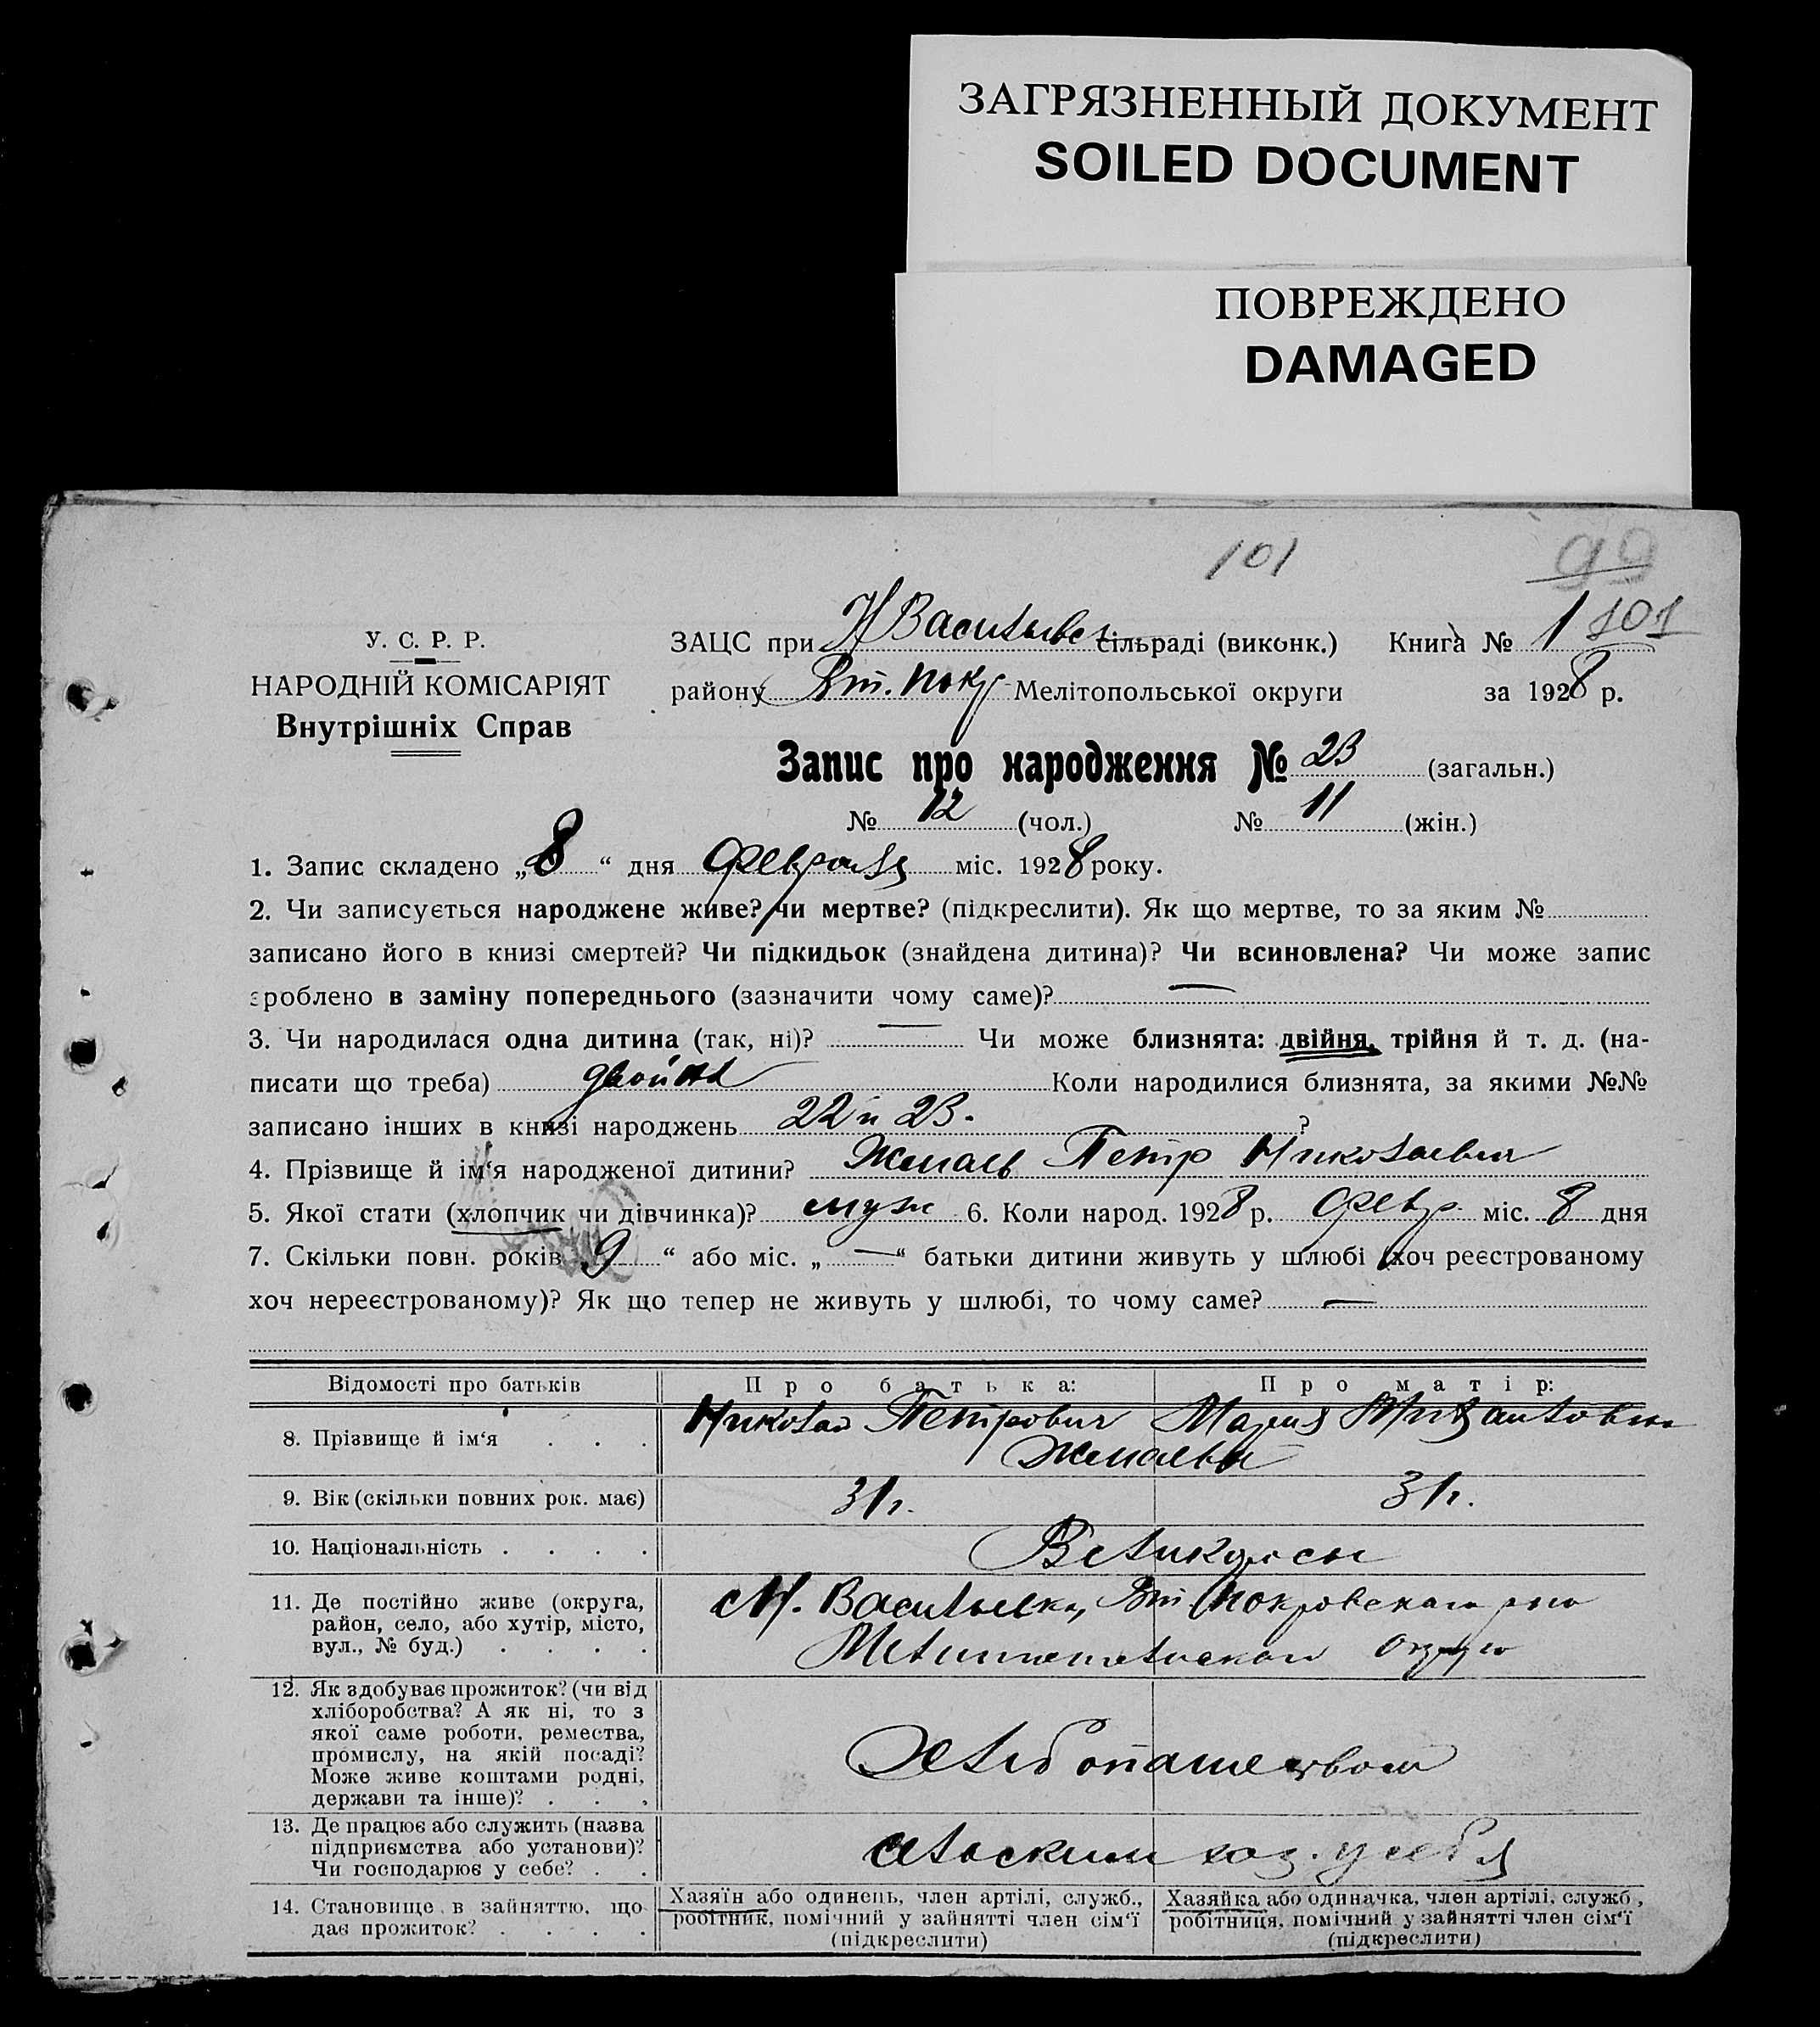 ЗАГРЯЗНЕННЫЙ ДОКУМЕНТ
SOILED DOCUMENT
ПОВРЕЖДЕНО
DAMAGED
101
99
101
У. С. Р. Р.
НАРОДНІЙ КОМІСАРІЯТ
Внутрішніх Справ
ЗАЦС при Н Васильевс сільраді (виконк.) Книга № 1
району Вт. Покр Мелітопольської округи за 1928 р.
Запис про народження № 23 (загальн.)
№ 12 (чол.) № 11 (жін.)
1. Запис складено „8“ дня февраля міс. 1928 року.
2. Чи записується народжене живе? чи мертве? (підкреслити). Як що мертве, то за яким №
записано його в книзі смертей? Чи підкидьок (знайдена дитина)? Чи всиновлена? Чи може запис
зроблено в заміну попереднього (зазначити чому саме)? —
3. Чи народилася одна дитина (так, ні)? — Чи може близнята: двійня, трійня й т. д. (на-
писати що треба) двойня Коли народилися близнята, за якими №№
записано інших в книзі народжень 22 и 23. ?
4. Прізвище й ім‘я народженої дитини? Петр Николаевич
5. Якої стати (хлопчик чи дівчинка)? муж 6. Коли народ. 1928 р. Февр. міс. 8 дня
7. Скільки повн. років „9“ або міс. „—“ батьки дитини живуть у шлюбі (хоч реєстрованому
хоч нереєстрованому)? Як що тепер не живуть у шлюбі, то чому саме? —
Відомості про батьків Про батька: Про матір:
8. Прізвище й ім‘я . . . Николай Петрович Мария
9. Вік (скільки повних рок. має) 31 г. 31 г.
10. Національність . . . . Великоросы
11. Де постійно живе (округа,
район, село, або хутір, місто,
вул., № буд.) . . . .
Н. Васильевка, Вт. Покровскаго р-на
Мелитопольскаго Округа
12. Як здобуває прожиток? (чи від
хліборобства? А як ні, то з
якої саме роботи, ремества,
промислу, на якій посаді?
Може живе коштами родні,
держави та інше)? . . .
Хлебопашеством
13. Де працює або служить (назва
підприємства або установи)?
Чи господарює у себе? . .
сельским хоз. у себя
14. Становище в зайняттю, що
дає прожиток? . . . .
Хазяїн або одинець, член артілі, служб.,
робітник, помічний у зайнятті член сім‘ї
(підкреслити)
Хазяйка або одиначка, член артілі, служб.,
робітниця, помічний у зайнятті член сім‘ї
(підкреслити)